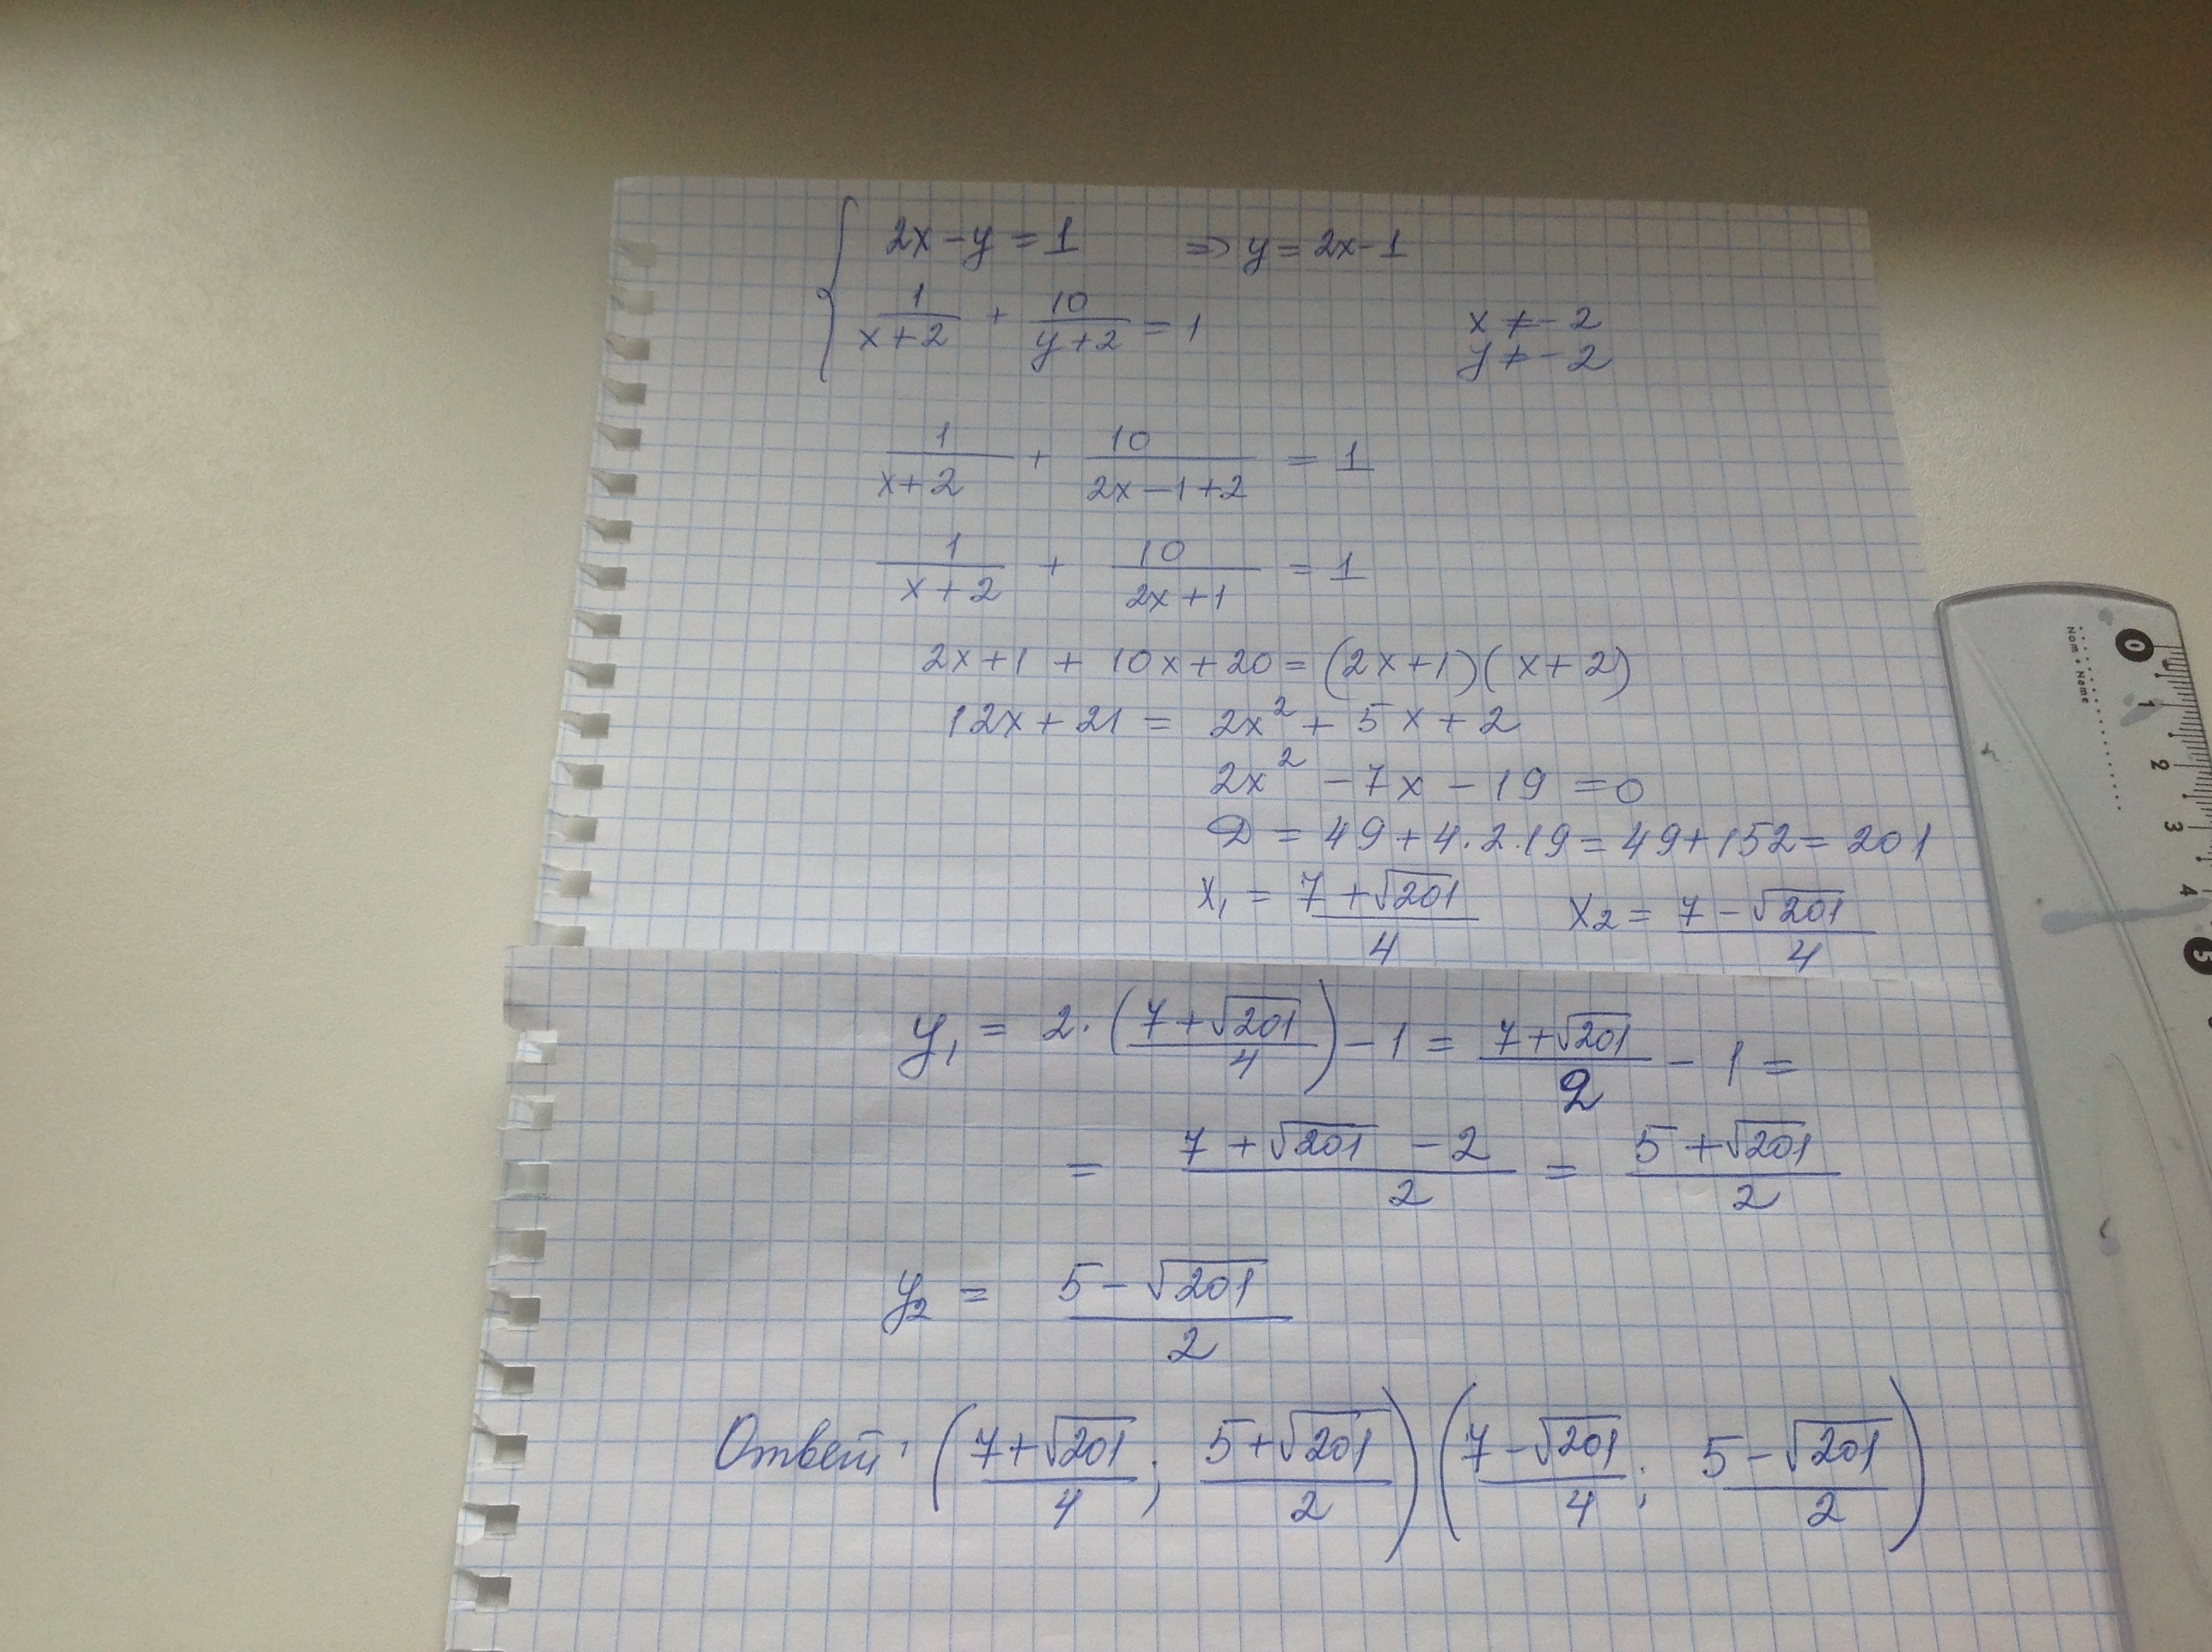 2x - y = 1 ⇒ y = 2x - 1
1/(x+2) + 10/(y+2) = 1
x ≠ -2
y ≠ -2
1/(x+2) + 10/(2x-1+2) = 1
1/(x+2) + 10/(2x+1) = 1
2x+1 + 10x+20 = (2x+1)(x+2)
12x+21 = 2x² + 5x + 2
2x² - 7x - 19 = 0
D = 49 + 4·2·19 = 49+152 = 201
x₁ = (7+√201)/4 x₂ = (7-√201)/4
y₁ = 2·((7+√201)/4) - 1 = (7+√201)/2 - 1 =
= (7+√201 - 2)/2 = (5+√201)/2
y₂ = (5-√201)/2
Ответ: ((7+√201)/4; (5+√201)/2) ((7-√201)/4; (5-√201)/2)
Nom: Name
0
1
2
3
4
5